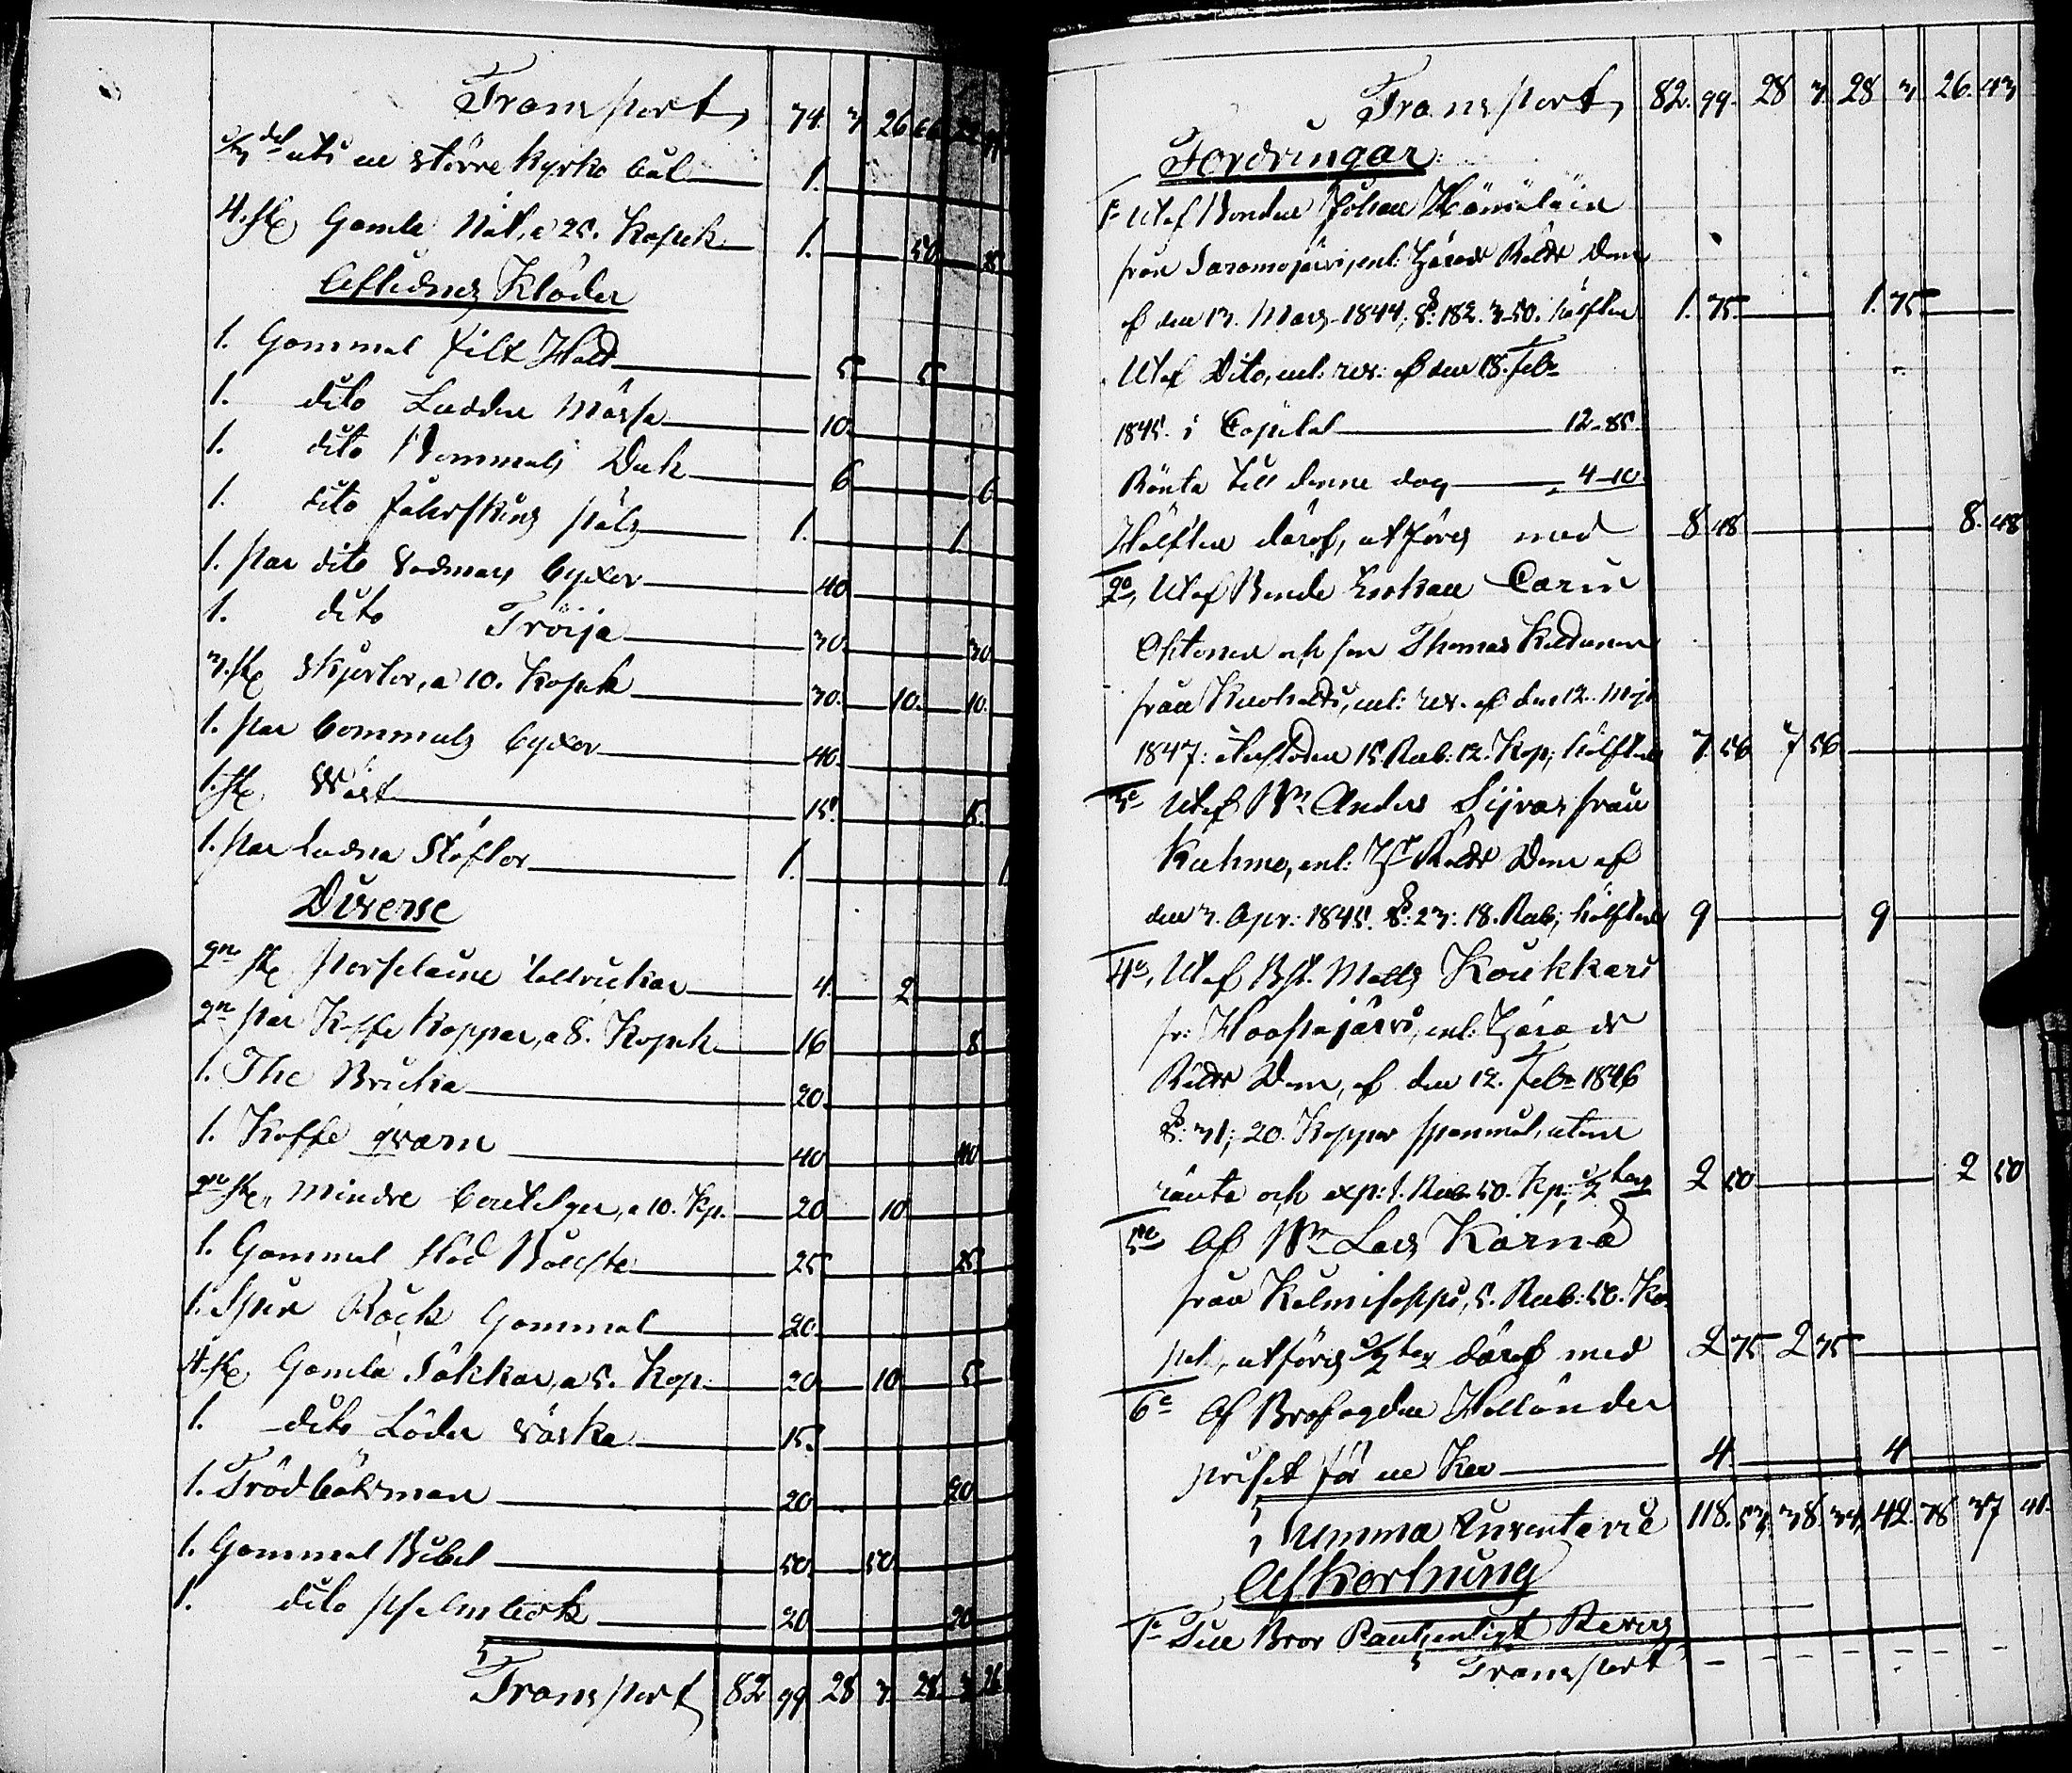 Transport, 74. 3 26 66
del uti en större kyrko båt 1.
4. st. Gamla Nät, a 25. Kopek 1. 50
Aflidnes Kläder
1. Gammal filt Hatt 5 5
1. dito Ludden Mössa 10.
1. dito Bommuls Duk 6 6
1. dito fåhrskins päls 1. 1
1. par dito Vadmars byxor 40
1. dito Tröija 30. 30
3. st. Skjortor, a 10. Kopek 30. 10. 10.
1. par bommuls byxor 40.
1. st. Wäst 15. 15.
1. par Ludna Stöflor 1. 1
Diverse
2ne st. porselaine tallrickar 4. 2
2ne par Koffe koppar, a 8. Kopek 16 8
1. The Bricka 20
1. Koffe qvarn 40 40
2ne st. mindre bouteljer, a 10. Kp. 20 10
1. Gammal Röd 25 25
1. Spin Rock Gammal 20
4. st. Gamla Säkkar, a 5. Kop. 20 10 5
1. dito Läder väska 15.
1. 20 20
1. Gammal Bibel 50 50
1. dito psalmbok 20 20
Transport 82 99 28 3 28 3 26
Transport, 82. 99. 28 3 28 3 26. 43
Fordringar:
1o Utaf Bonden Johan
från Saramojärvi, enl: Härads Rätts Dom
af den 13. Mars 1844, §: 182. 3-50. hälften 1. 75. 1. 75
Utaf Dito, enl: rev: af den 18. Febr
1845. i Capital 12-85.
Ränta till denne dag 4-10.
Hälften däraf, utföres med 8 48 8. 48
2o, Utaf Bonde Enkan Carin
och son Thomas
från enl: rev. af den 12. Maji
1847: 15. Rub: 12. Kop; hälften 7. 56 7 56
3o Utaf Bn Anders Sijvar från
Kuhmo, enl: Hds Rätts Dom af
den 3. Apr: 1845. §: 23: 18. Rub; hälften 9 9
4o, Utaf Bd. Matts Koukkari
fr: Haapajärvi, enl: Härads
Rätts Dom, af den 12. Febr 1846
§: 31; 20. Kappar spanmål, utom
ränta och exp: 1. Rub. 50. Kp; 2 50 2 50
5o Af Bn Lars Kärnä
från 5. Rub: 50. Ko
pek, utföres däraf med 2 75 2 75
6o Af Brofogden Hollander
priset för en Ko 4. 4
Summa Inventarie 118. 53. 38. 34. 42. 78 37 41.
Afkortning
1o Till Bror enligt Revers
Transport